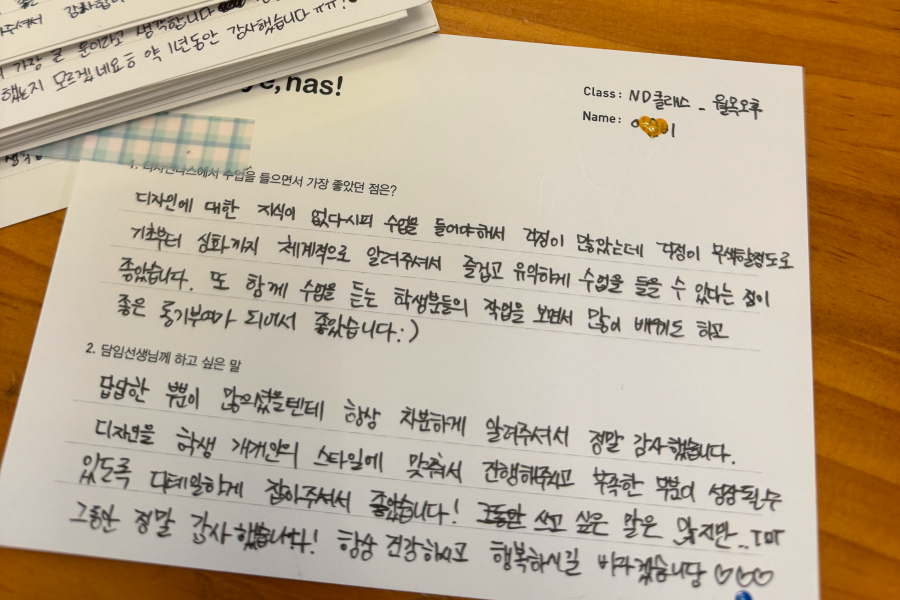 가장 큰 운이라고 생각합니다
했는지 모르겠네요ㅎ 약 1년동안 감사했습니다 ㅠㅠ!
nas!
Class: ND클래스 - 월목오후
Name:
1. 디자인나스에서 수업을 들으면서 가장 좋았던 점은?
디자인에 대한 지식이 없다시피 수업을 들어야해서 걱정이 많았는데 걱정이 무색할정도로
기초부터 심화까지 체계적으로 알려주셔서 즐겁고 유익하게 수업을 들을 수 있다는 점이
좋았습니다. 또 함께 수업을 듣는 학생분들의 작업을 보면서 많이 배끼도 하고
좋은 동기부여가 되어서 좋았습니다:)
2. 담임선생님께 하고 싶은 말
답답한 부분이 많으셨을텐데 항상 차분하게 알려주셔서 정말 감사했습니다.
디자인을 학생 개개인의 스타일에 맞춰서 진행해주시고 부족한 부분이 성장될수
있도록 디테일하게 잡아주셔서 좋았습니다! 그동안 쓰고 싶은 말은 많지만.. ToT
그동안 정말 감사했습니다! 항상 건강하시고 행복하시길 바라겠습니당 ♡♡♡